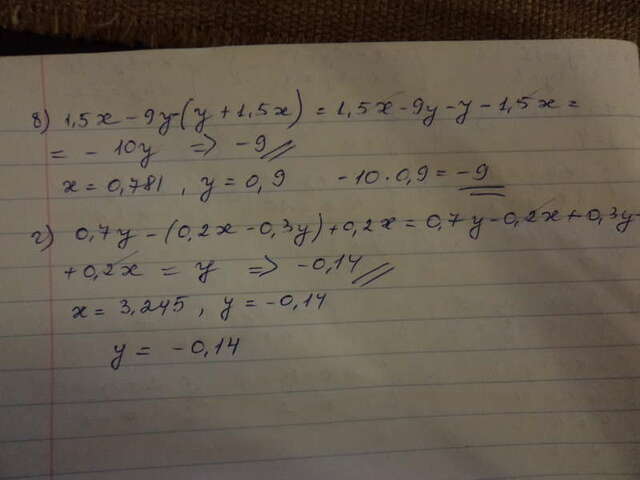 в) 1,5x - 9y - (y + 1,5x) = 1,5x - 9y - y - 1,5x =
= - 10y => -9
x = 0,781 , y = 0,9 -10 · 0,9 = -9
г) 0,7y - (0,2x - 0,3y) + 0,2x = 0,7y - 0,2x + 0,3y
+ 0,2x = y => -0,14
x = 3,245 , y = -0,14
y = -0,14